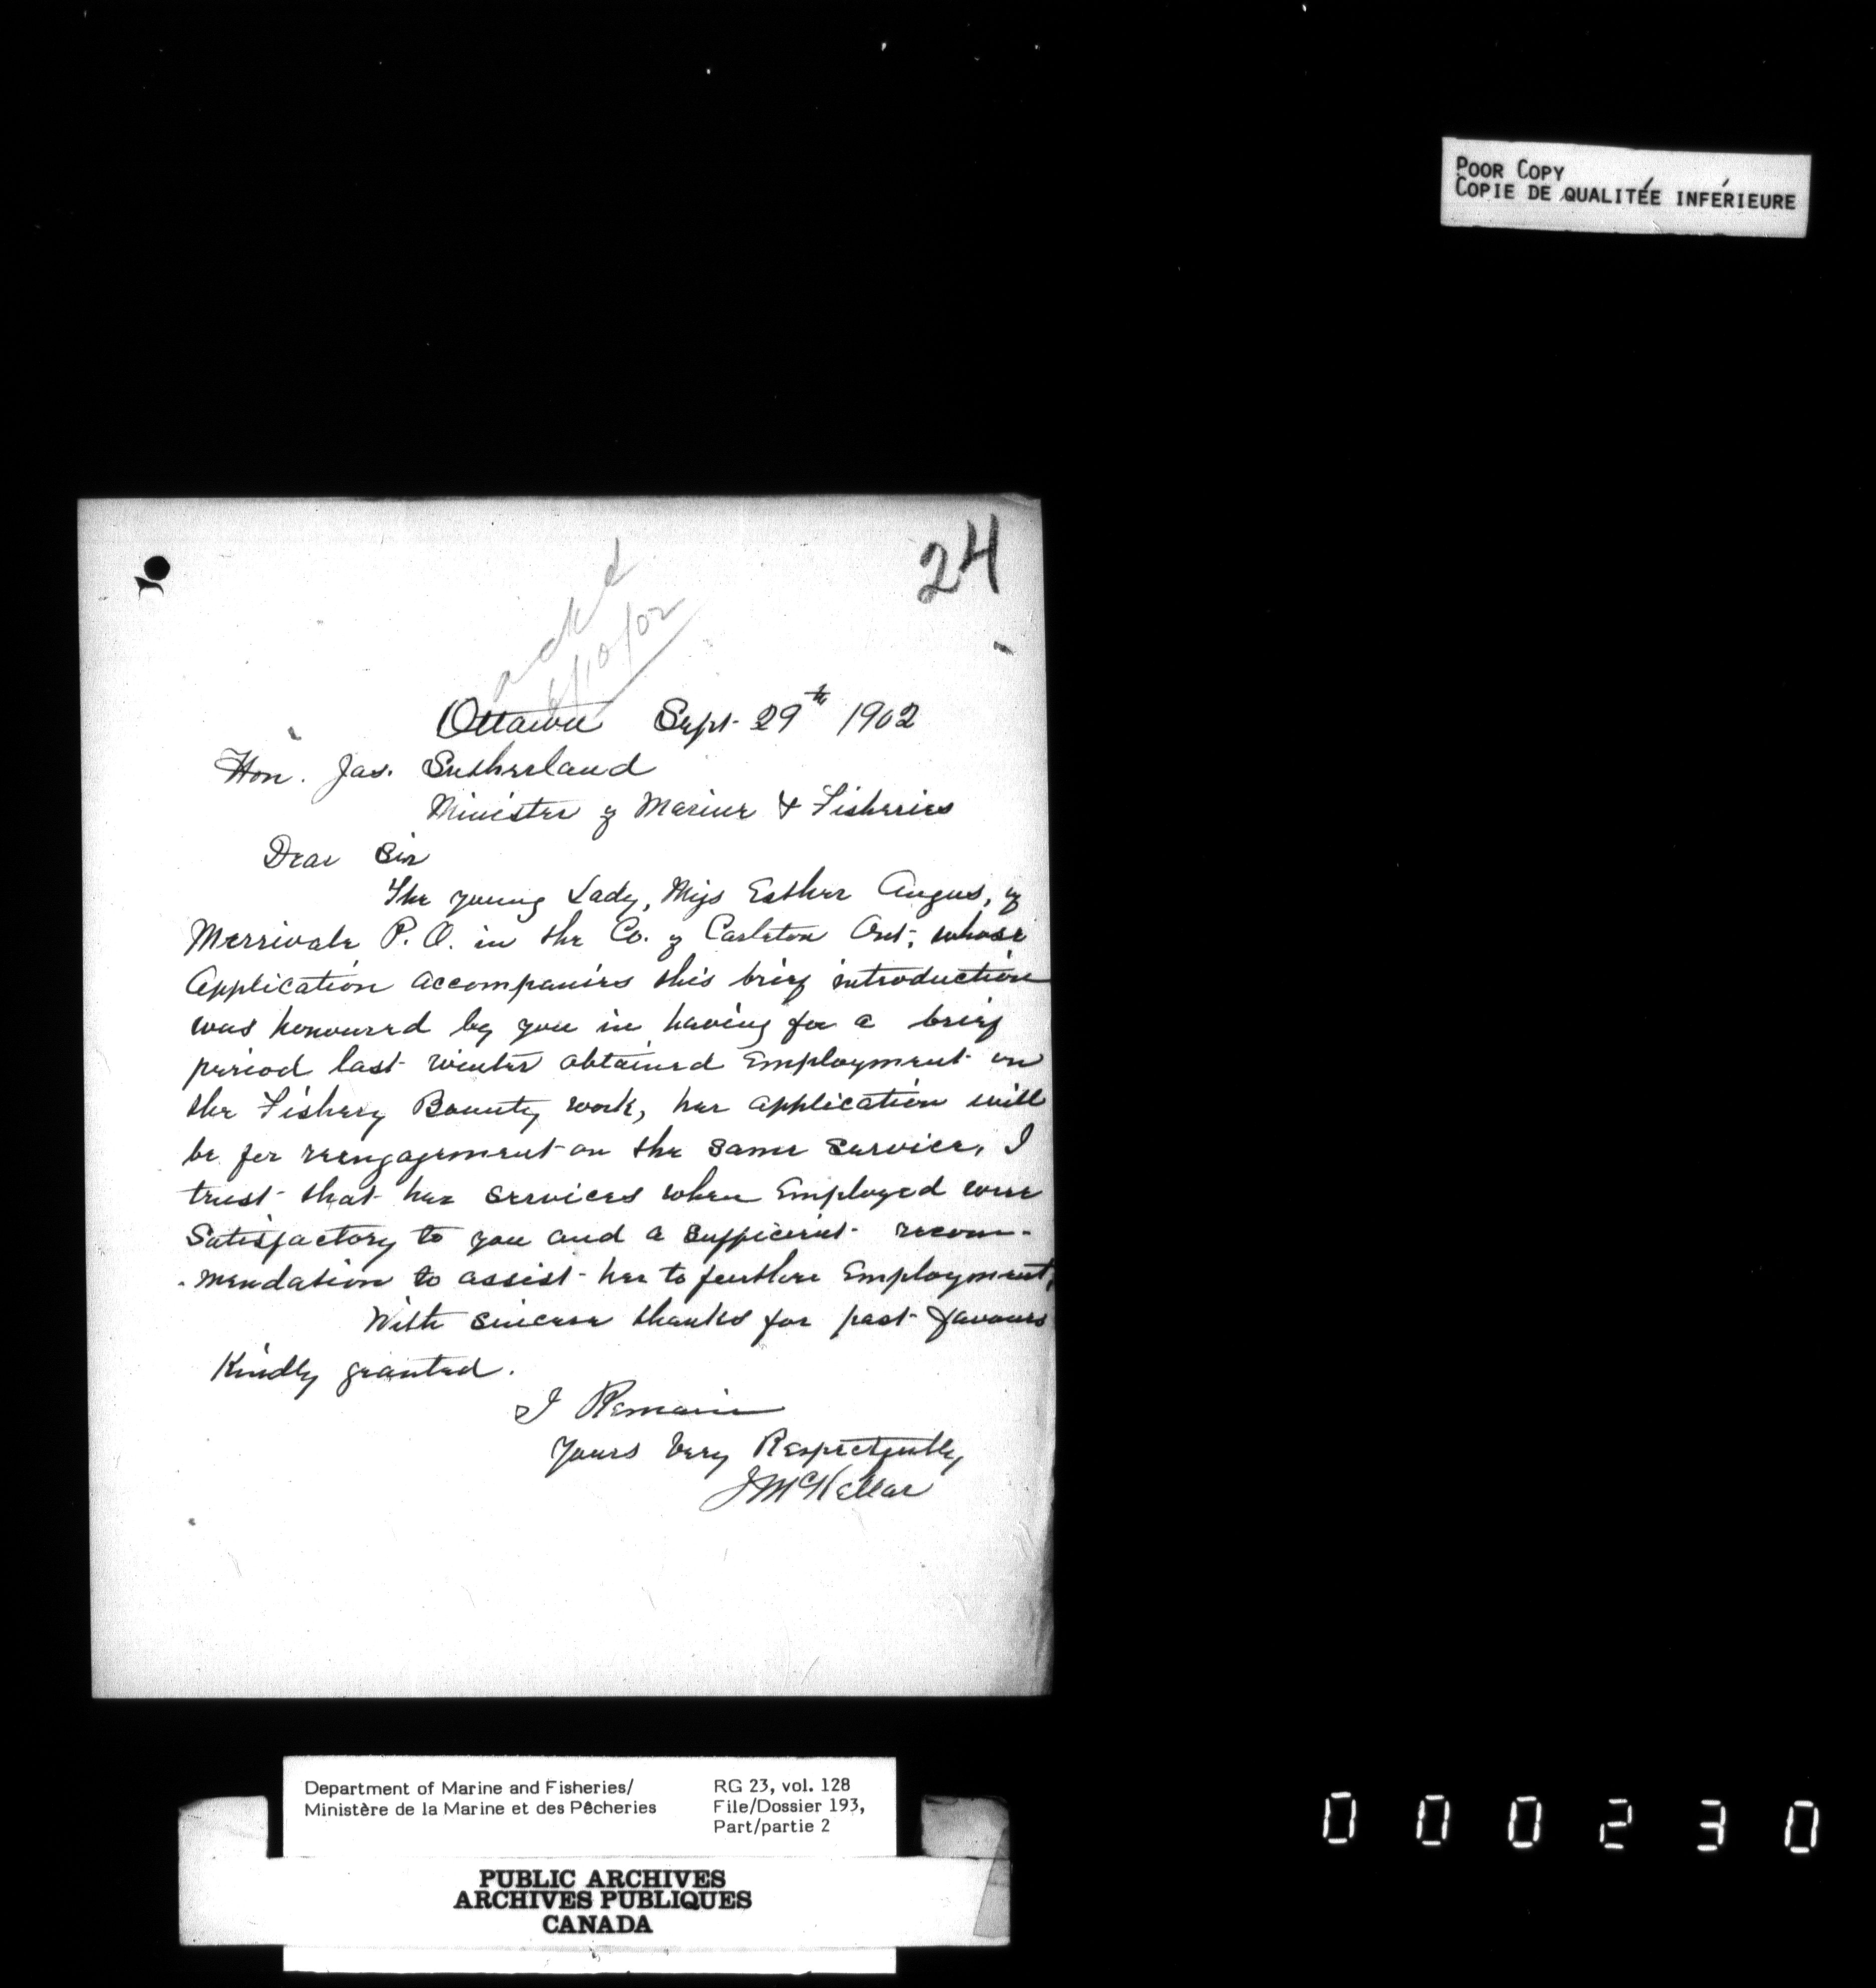 POOR COPY
COPIE DE QUALITÉE INFÉRIEURE
24
ackd
6/10/02
Ottawa Sept. 29th 1902
Hon. Jas. Sutherland
Minister of Marine & Fisheries
Dear Sir
The young Lady, Miss Esther Angus, of
Merrivale P.O. in the Co. of Carleton Ont; whose
Application accompanies this brief introduction
was honoured by you in having for a brief
period last winter obtained Employment on
the Fishery Bounty work, her application will
be for reengagement on the same service, I
trust that her services when Employed were
Satisfactory to you and a sufficient recom-
-mendation to assist her to further Employment,
With sincere thanks for past favours
Kindly granted.
I Remain
Yours Very Respectfully
J McKellar
Department of Marine and Fisheries/
Ministère de la Marine et des Pêcheries
RG 23, vol. 128
File/Dossier 193,
Part/partie 2
PUBLIC ARCHIVES
ARCHIVES PUBLIQUES
CANADA
000230